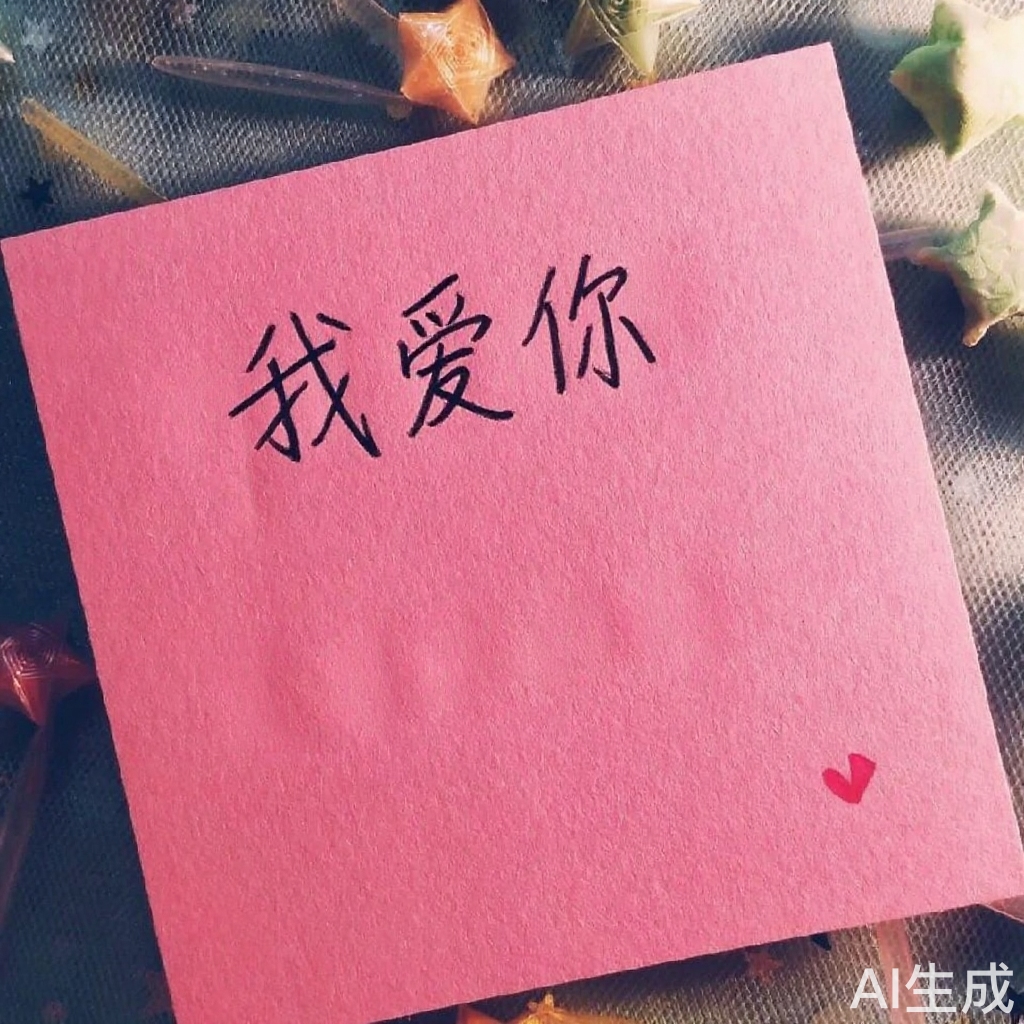 我爱你
AI生成